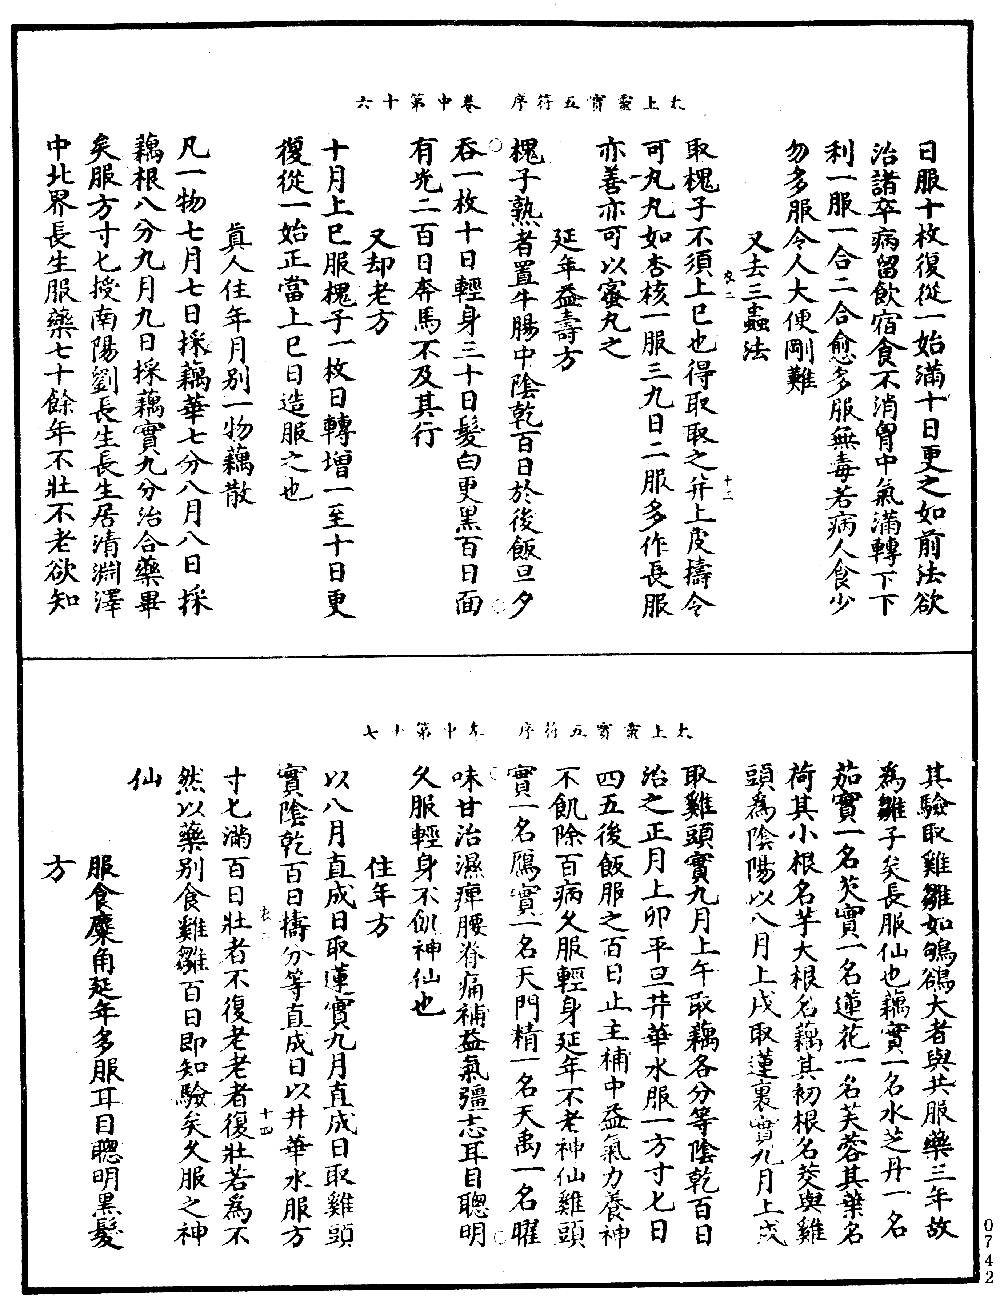 太上靈寶五符序　卷中第十六
日服十枚復從一始滿十日更之如前法欲
治諸卒病留飲宿食不消胷中氣滿轉下下
利一服一合二合愈多服無毒若病人食少
勿多服令人大便剛難
又去三蟲法
取槐子不須上巳也得取取之并上皮擣令
可丸丸如杏核一服三九日二服多作長服
亦善亦可以蜜丸之
延年益壽方
槐子熟者置牛腸中陰乾百日於後飯旦夕
吞一枚十日輕身三十日髮白更黑百日面
有光二百日奔馬不及其行
又却老方
十月上巳服槐子一枚日轉增一至十日更
復從一始正當上巳日造服之也
真人住年月别一物藕散
凡一物七月七日採藕華七分八月八日採
藕根八分九月九日採藕實九分治合藥畢
矣服方寸匕授南陽劉長生長生居清淵澤
中北界長生服藥七十餘年不壯不老欲知
太上靈寶五符序　卷中第十七
其驗取雞雛如鴝鵒大者與共服藥三年故
為雛子矣長服仙也藕實一名水芝丹一名
茄實一名芡實一名蓮花一名芙蓉其葉名
荷其小根名芋大根名藕其初根名茭與雞
頭為陰陽以八月上戌取蓮裏實九月上戌
取雞頭實九月上午取藕各分等陰乾百日
治之正月上卯平旦井華水服一方寸匕日
四五後飯服之百日止主補中益氣力養神
不飢除百病久服輕身延年不老神仙雞頭
實一名鴈實一名天門精一名天禹一名曜
味甘治濕痺腰脊痛補益氣彊志耳目聰明
久服輕身不飢神仙也
住年方
以八月直成日取蓮實九月直成日取雞頭
實陰乾百日擣分等直成日以井華水服方
寸匕滿百日壯者不復老老者復壯若為不
然以藥别食雞雛百日即知驗矣久服之神
仙
服食麋角延年多服耳目聰明黑髮
方
衣二
十三
十四
0742